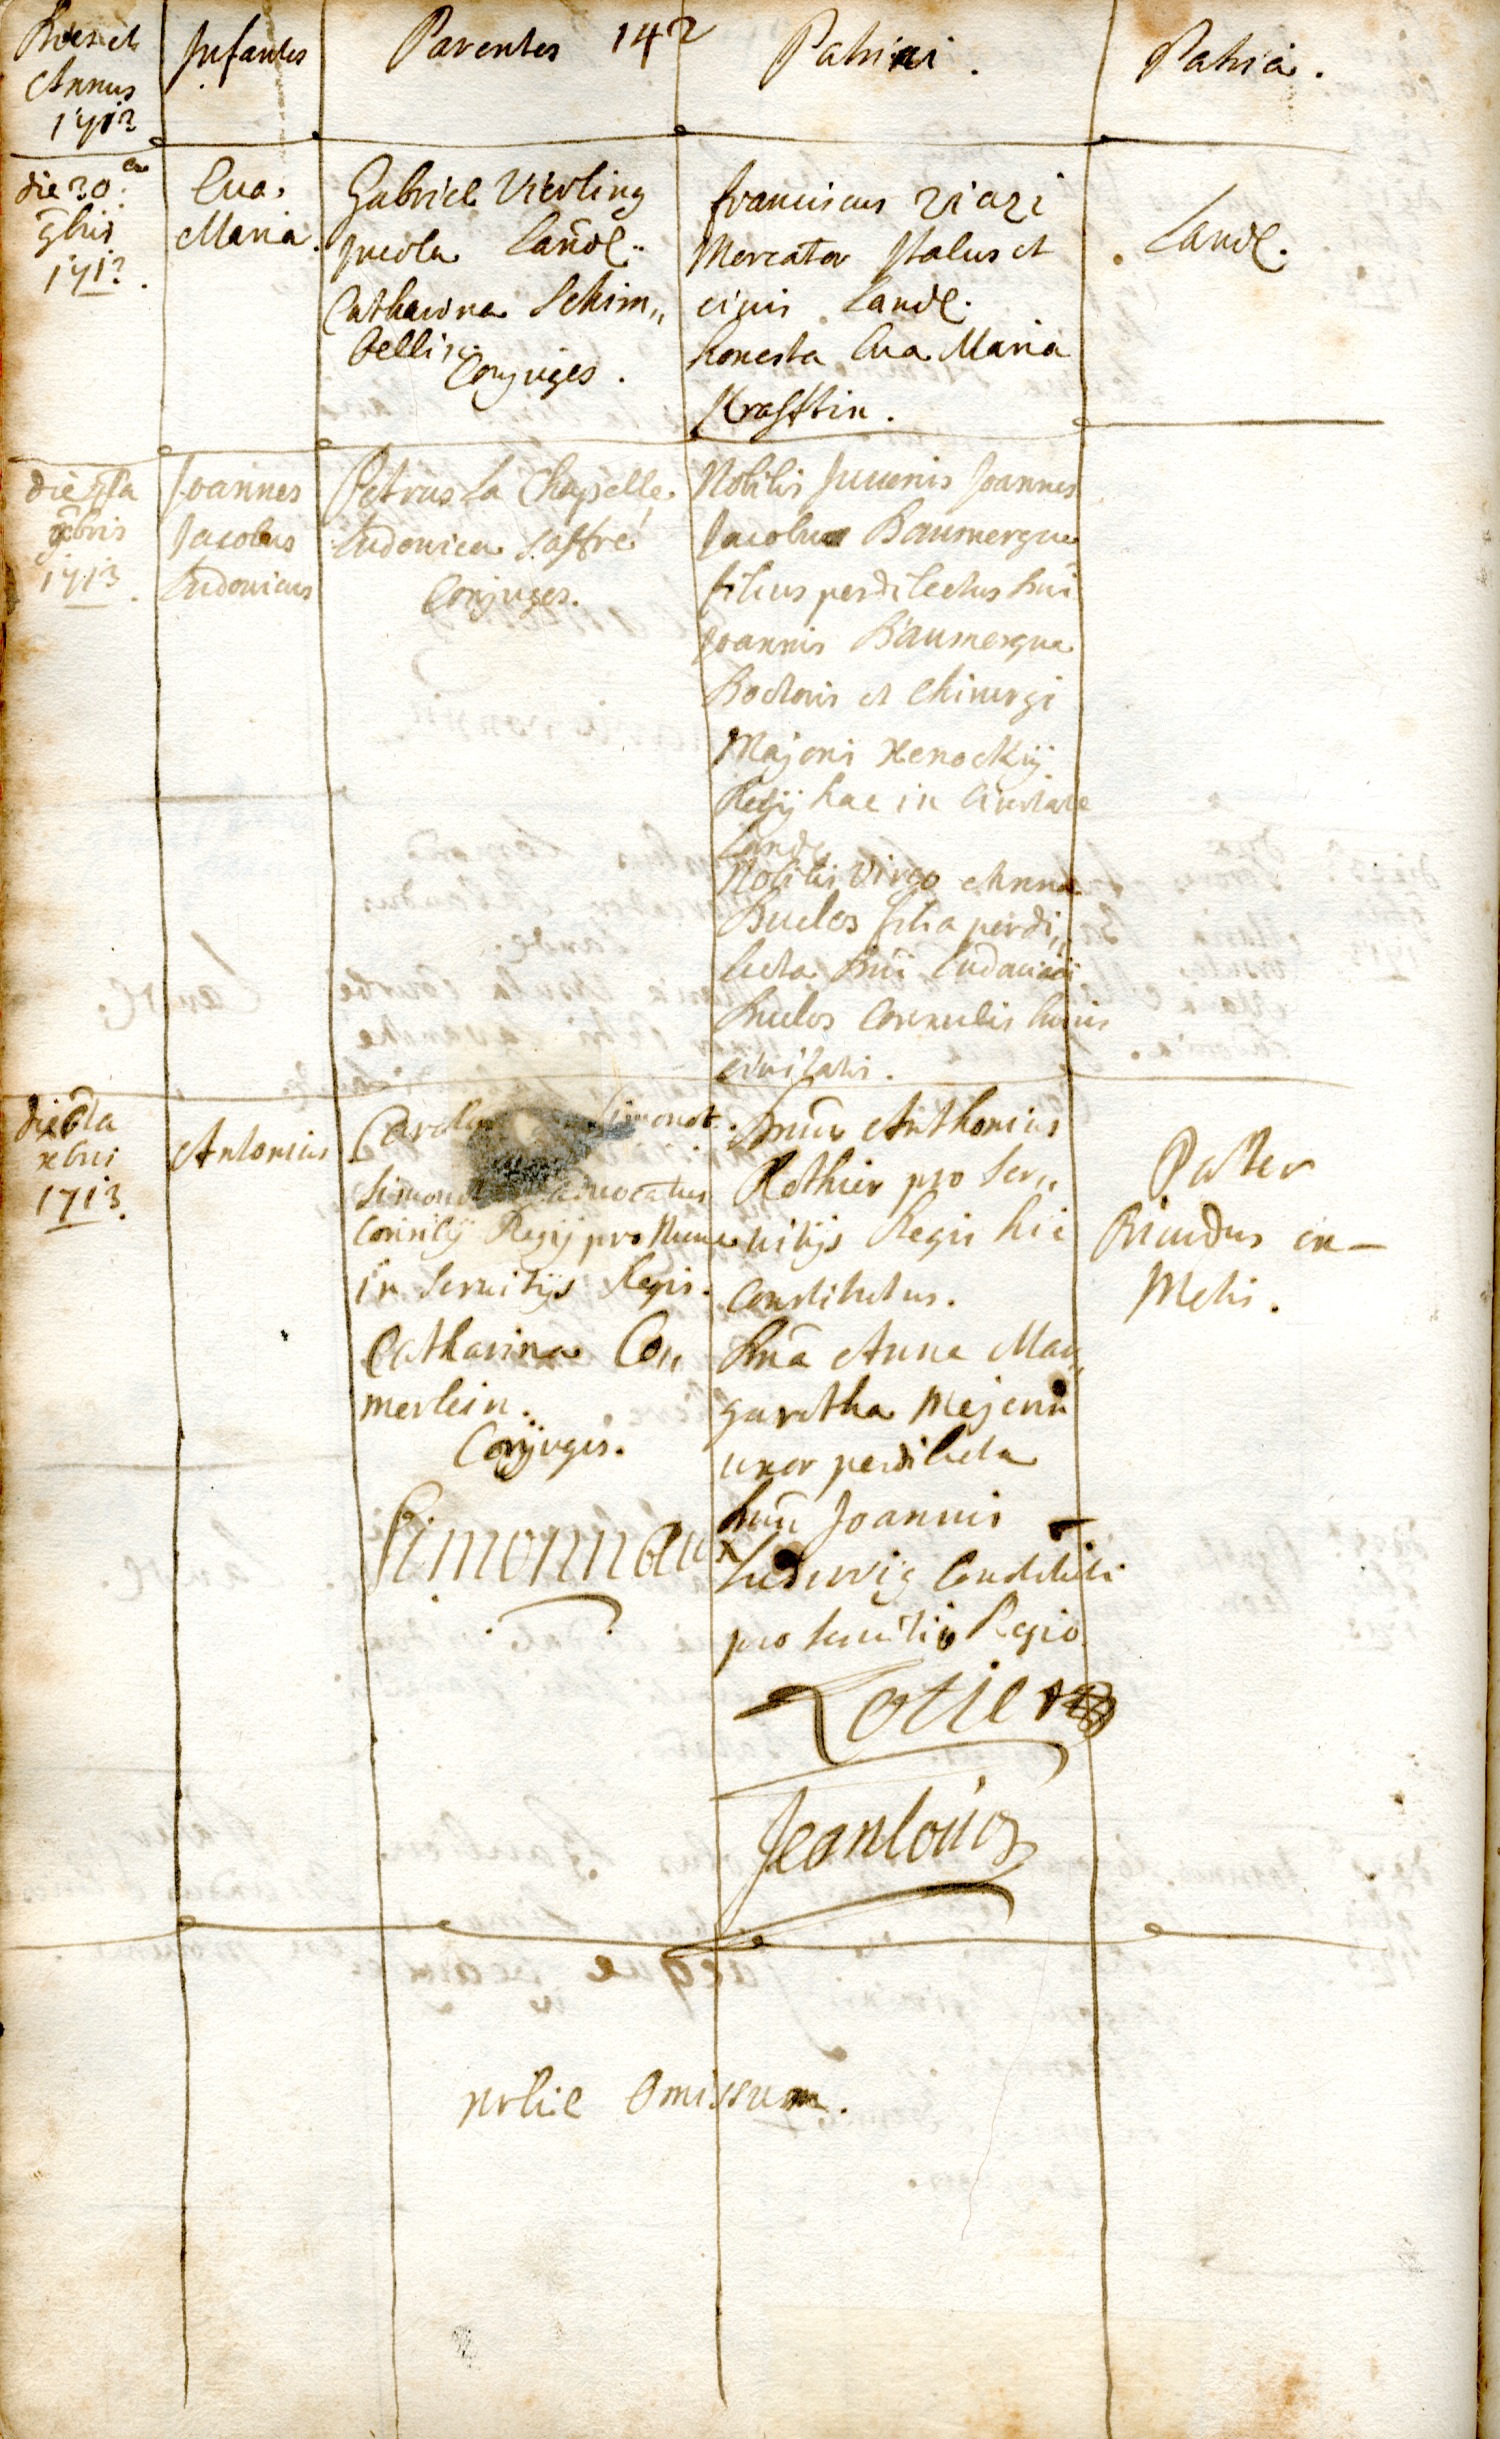 Dies et
Annus
1712
Infantes
Parentes 142
Patrini.
Patria.
die 30
9bris
1712.
Eva
Maria.
Gabriel Vierling
Incola Land:
Catharina Schim„
Conjuges.
Franciscus Viazi
Mercator Italus et
civis Land.
honesta Eva Maria
Krafftin.
Land.
die
xbris
1713.
Joannes
Jacobus
Ludovicus
Petrus La Chapelle
Ludovica Saffré
Conjuges.
Nobilis Juvenis Joannes
Jacobus Baumergue
filius perdilectus Dni
Joannis Baumergue
Doctoris et Chirurgi
Majoris Xenodkij
Regij hac in Civitate
Land.
Nobilis Virgo Anna
Duclos filia perdi„
lecta Dni Ludovici
Duclos Consulis huius
civitatis.
die
xbris
1713.
Antonius
Simonot
advocatus
Consilij Regij pro nunc
in Servitijs Regis.
Catharina Co„
merlein.
Conjuges.
Simonnaux
Dnus Anthonius
Rothier pro Ser„
vitijs Regis hic
Constitutus.
Dna Anna Mar„
garetha Mejerin
uxor perdilecta
Dni Joannis
Ludwig Constituti
pro servitio Regio
Rotier
Jean louis
Pater
Oriundus ex
Metis.
nihil Omissum.